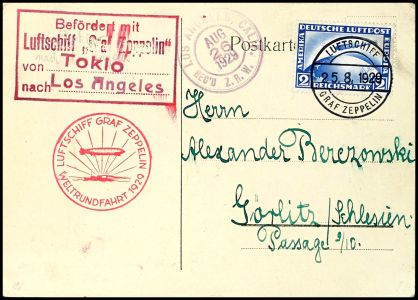 Befördert mit
Luftschiff „Graf Zeppelin"
von Tokio
nach Los Angeles
LOS ANGELES, CALIF.
AUG
26
1929
REC'D Z.R.W.
Postkarte
DEUTSCHE LUFTPOST
2 REICHSMARK 2
LUFTSCHIFF
25.8.1929
GRAF ZEPPELIN
LUFTSCHIFF GRAF ZEPPELIN
WELTRUNDFAHRT 1929
Herrn
Alexander Berezowski
Görlitz / Schlesien.
Passage 9/10.